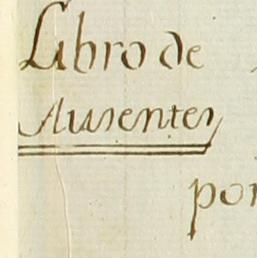 Libro de
Ausentes
por